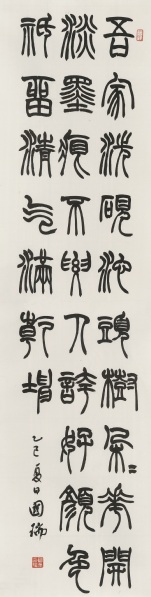 吾家洗硯池頭樹朵〻華開
淡墨痕不要人誇好顏色
祇留清气滿乾坤
乙巳夏日